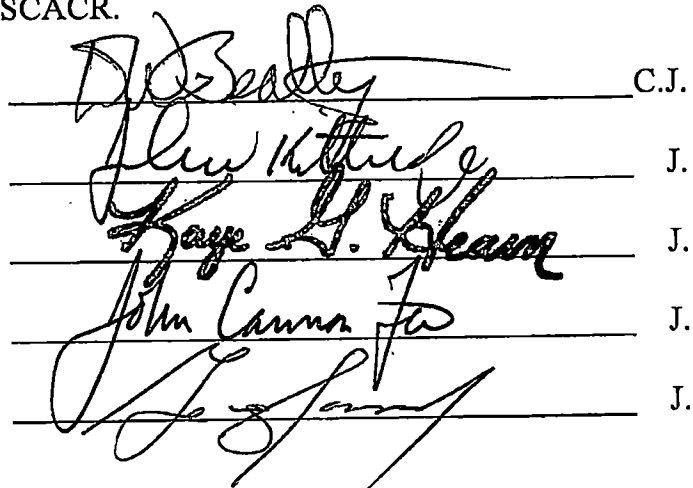 SCACR.
D W Beatty C.J.
John Kittredge J.
Kaye G. Hearn J.
John Cannon Few J.
J.